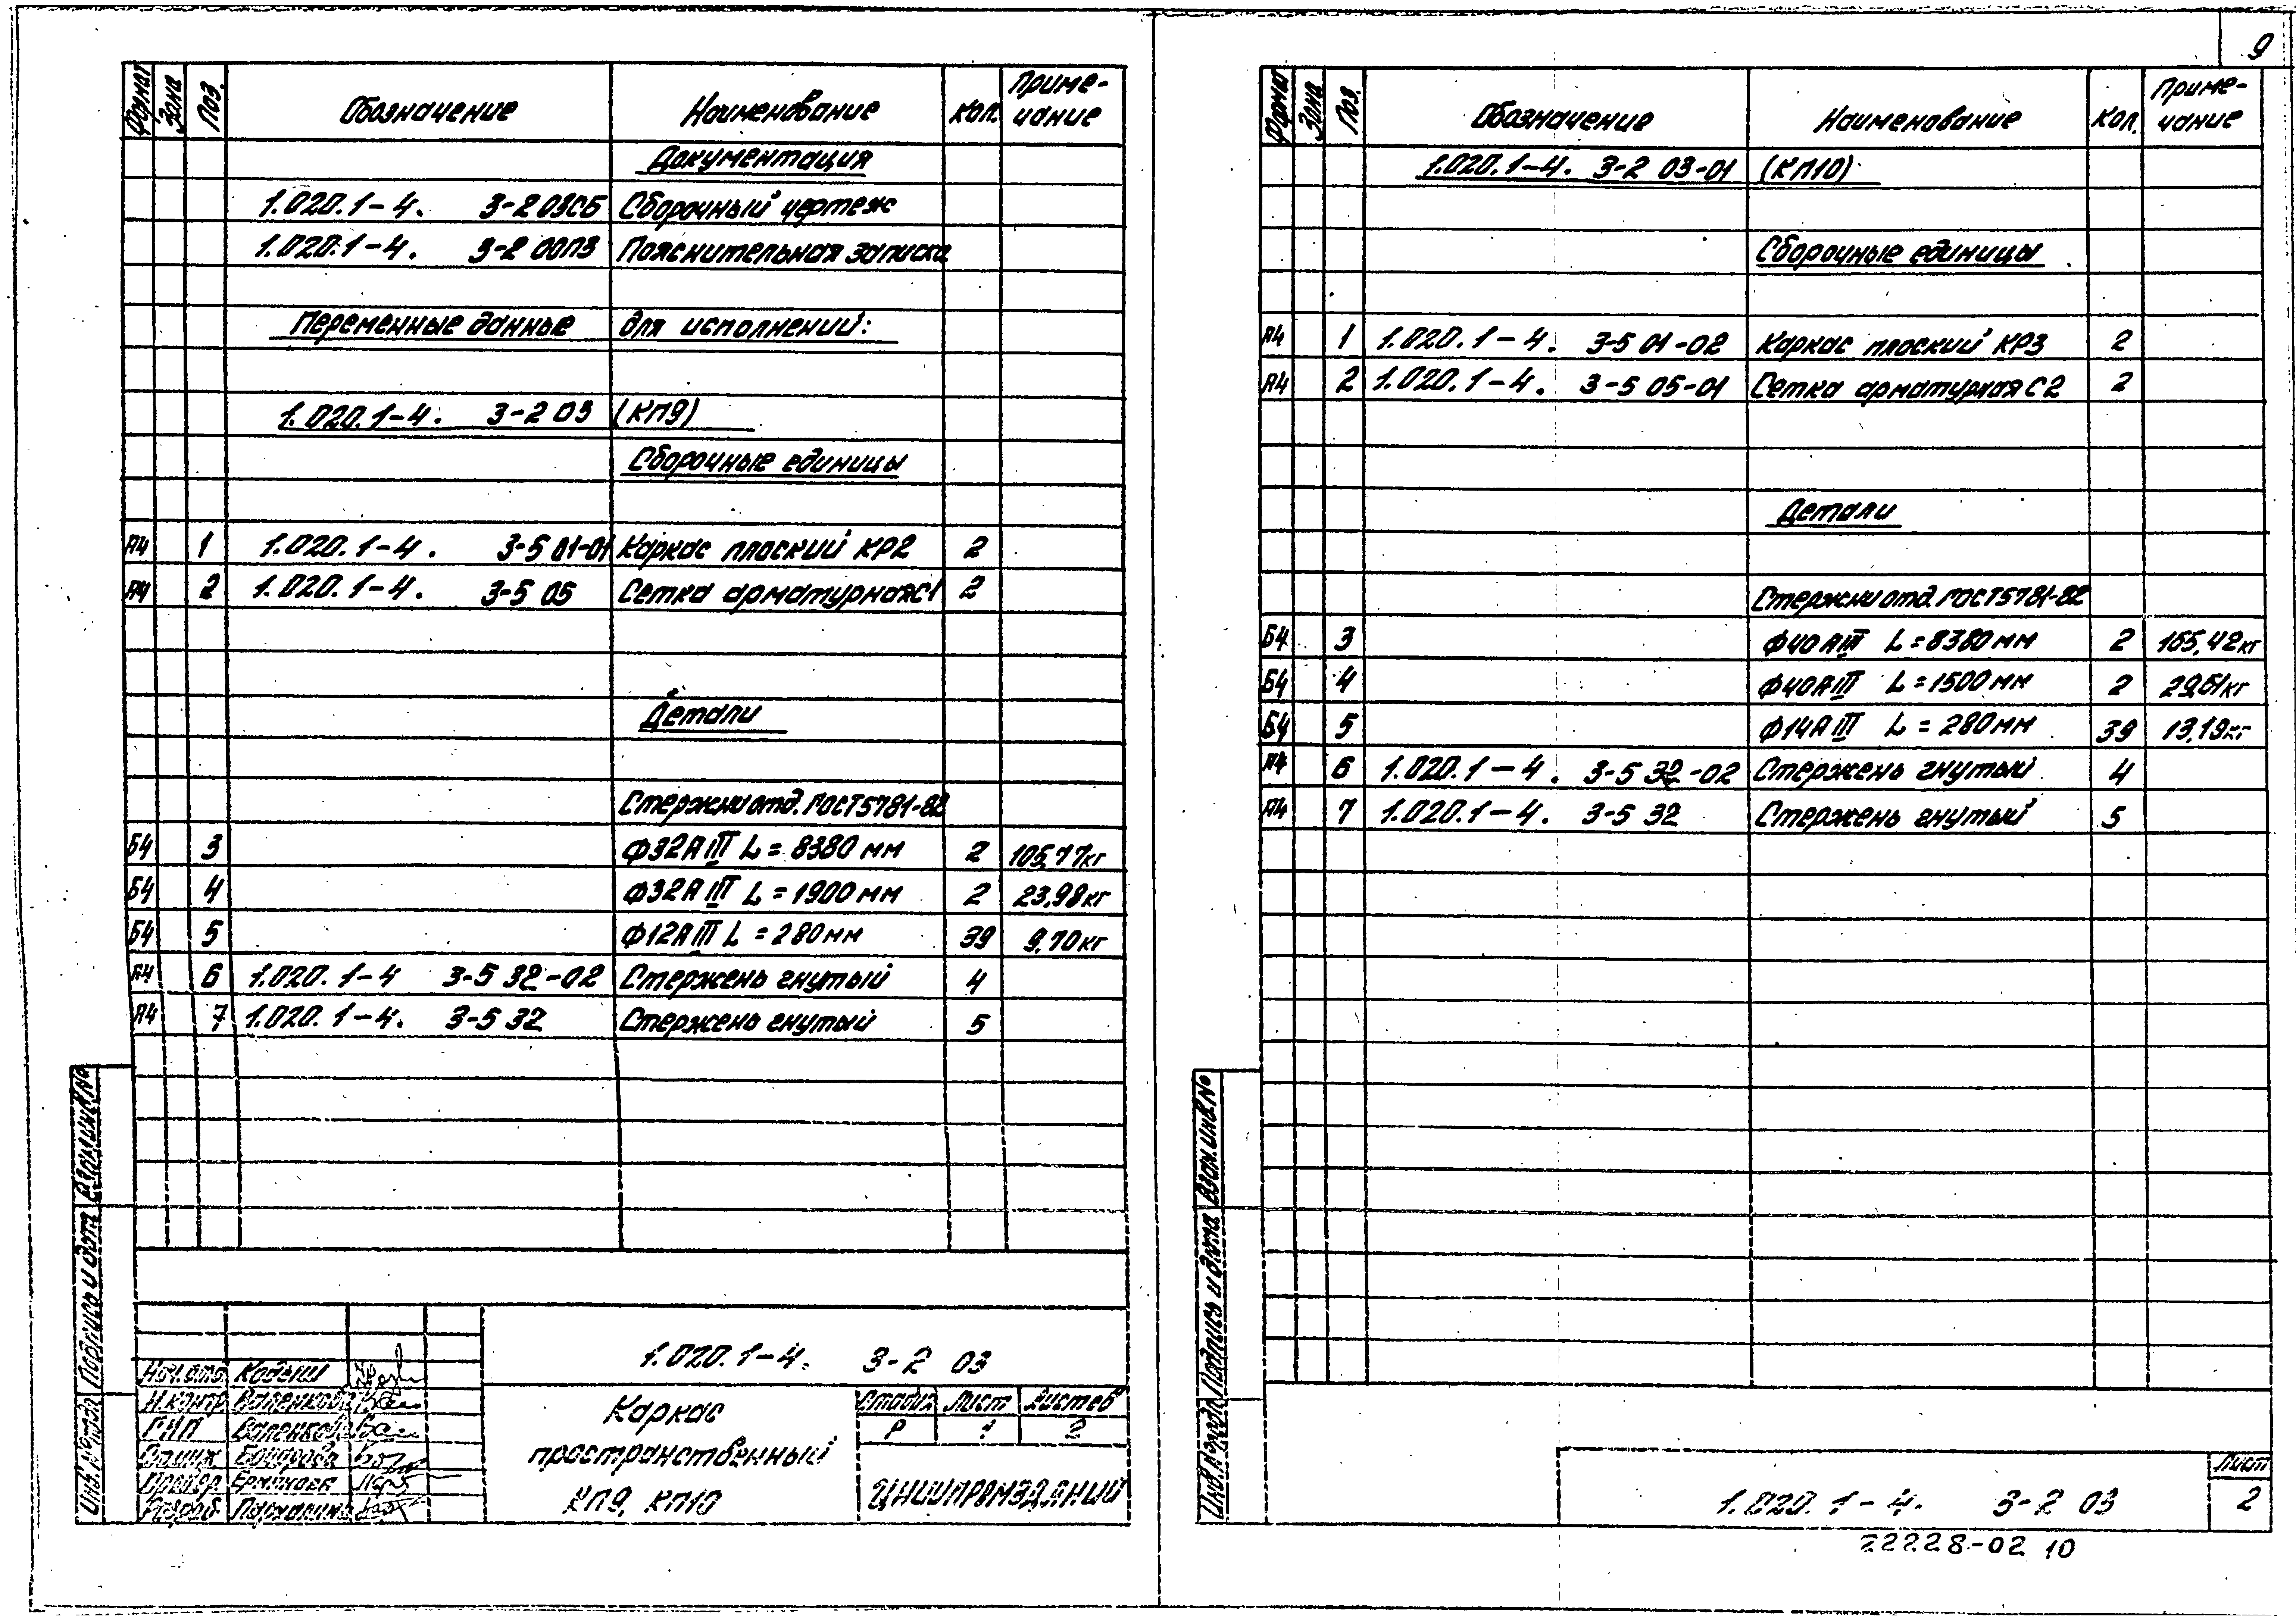 9
Формат Зона Поз. Обозначение Наименование Кол. Приме-чание
Документация
1.020.1-4. 3-2 03СБ Сборочный чертеж
1.020.1-4. 3-2 00ПЗ Пояснительная записка
Переменные данные для исполнений:
1.020.1-4. 3-2 03 (КП9)
Сборочные единицы
А4 1 1.020.1-4. 3-5 01-01 Каркас плоский КР2 2
А4 2 1.020.1-4. 3-5 05 Сетка арматурная С1 2
Детали
Стержни отд. ГОСТ 5781-82
Б4 3 Ф32АIII L=8380 мм 2 105,77кг
Б4 4 Ф32АIII L=1900 мм 2 23,98кг
Б4 5 Ф12АIII L=280мм 39 9,70кг
А4 6 1.020.1-4 3-5 32-02 Стержень гнутый 4
А4 7 1.020.1-4. 3-5 32 Стержень гнутый 5
Взам.инв.№
Подпись и дата
Инв.№подл.
1.020.1-4. 3-2 03
Нач.отд. Кодыш
Н.контр.
ГИП
Провер.
Разраб.
Каркас
пространственный
КП9, КП10
Стадия Лист Листов
Р 1 2
ЦНИИПРОМЗДАНИЙ
Формат Зона Поз. Обозначение Наименование Кол. Приме-чание
1.020.1-4. 3-2 03-01 (КП10)
Сборочные единицы
А4 1 1.020.1-4. 3-5 01-02 Каркас плоский КР3 2
А4 2 1.020.1-4. 3-5 05-01 Сетка арматурная С2 2
Детали
Стержни отд. ГОСТ 5781-82
Б4 3 Ф40АIII L=8380мм 2 165,42кг
Б4 4 Ф40АIII L=1500мм 2 29,61кг
Б4 5 Ф14АIII L=280мм 39 13,19кг
А4 6 1.020.1-4. 3-5 32-02 Стержень гнутый 4
А4 7 1.020.1-4. 3-5 32 Стержень гнутый 5
Взам.инв.№
Подпись и дата
Инв.№подл.
1.020.1-4. 3-2 03
Лист
2
22228-02 10